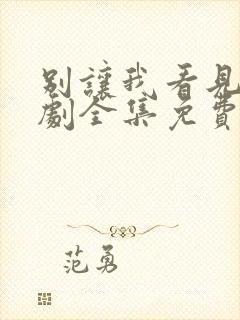 別讓我看見
劇全集免費
范勇